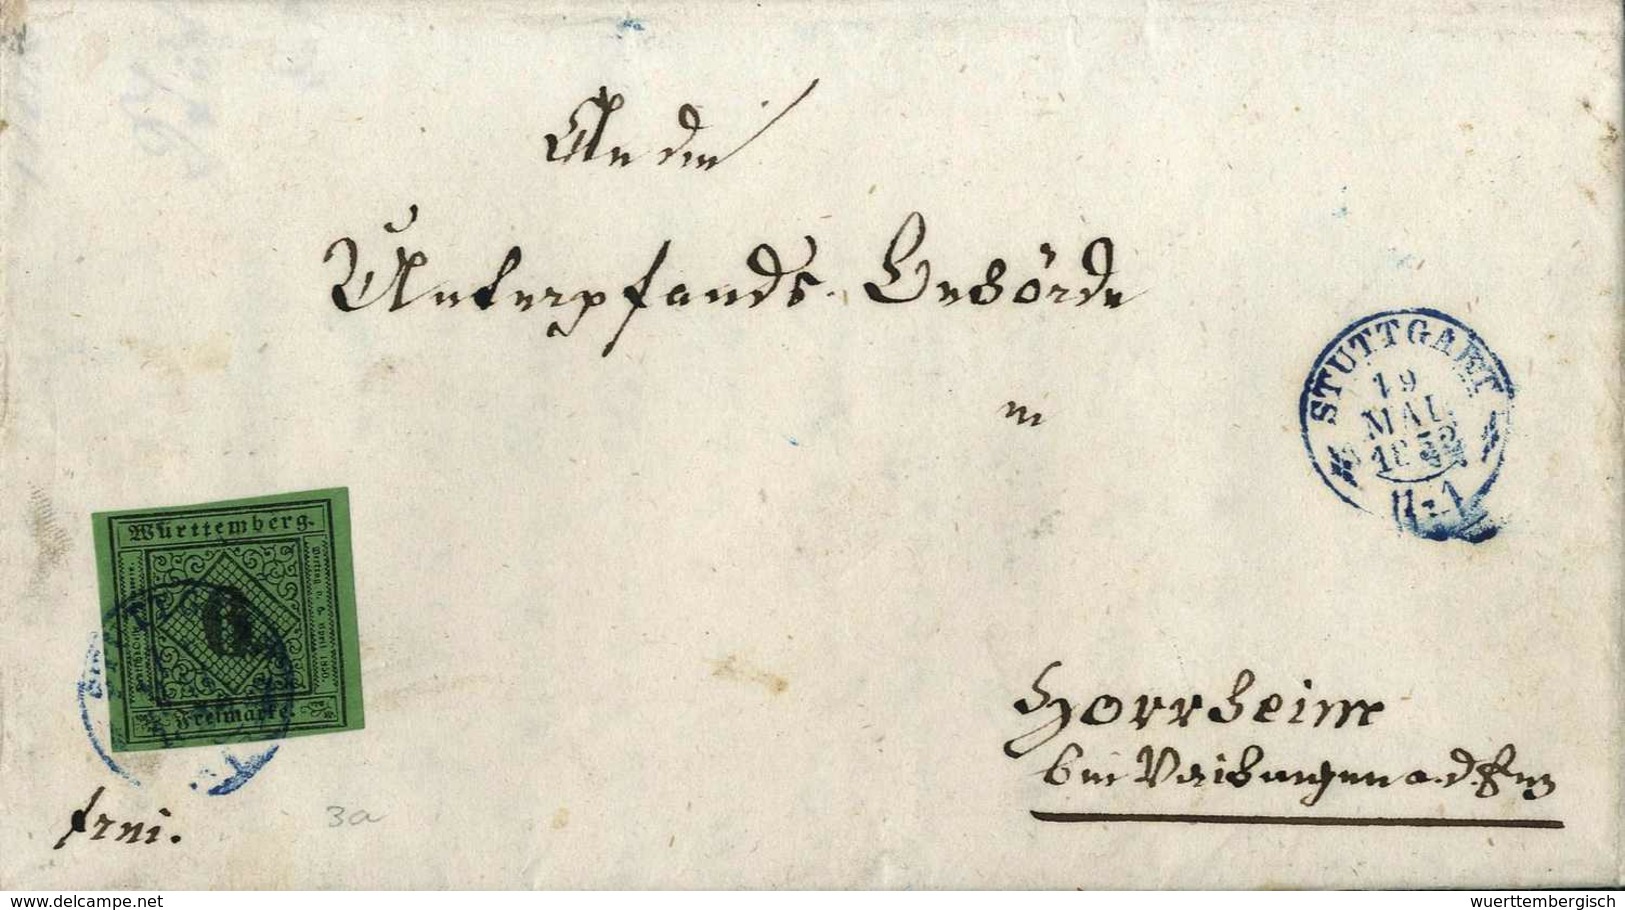 An die
Unterpfands-Behörde
in
STUTTGART
19
MAI
185
Württemberg.
6
Freimarke.
Horrheim
bei Vaihingen a. d. Enz
frei.
3a
delcampe.net
wuerttembergisch